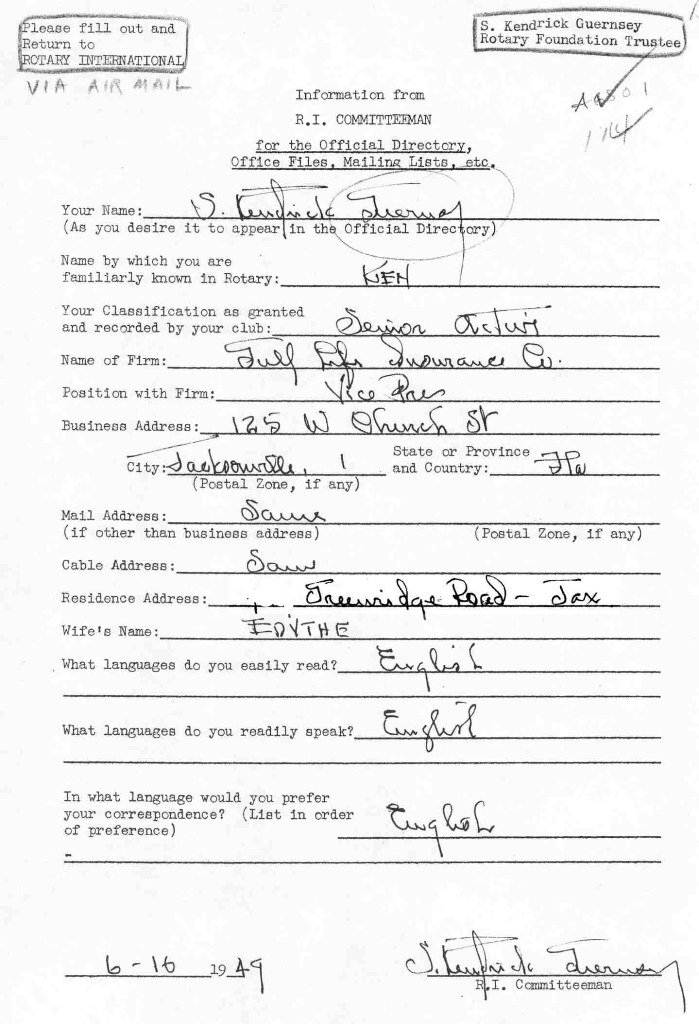 Please fill out and
Return to
ROTARY INTERNATIONAL
VIA AIR MAIL
S. Kendrick Guernsey
Rotary Foundation Trustee
Information from
R.I. COMMITTEEMAN
for the Official Directory,
Office Files, Mailing Lists, etc.
Your Name: S. Kendrick Guernsey
(As you desire it to appear in the Official Directory)
Name by which you are
familiarly known in Rotary: KEN
Your Classification as granted
and recorded by your club: Senior Active
Name of Firm: Gulf Life Insurance Co.
Position with Firm: Vice Pres
Business Address: 125 W Church St
City: Jacksonville, 1 State or Province and Country: Fla
(Postal Zone, if any)
Mail Address: Same
(if other than business address) (Postal Zone, if any)
Cable Address: Same
Residence Address: Greenridge Road - Jax
Wife's Name: EDYTHE
What languages do you easily read? English
What languages do you readily speak? English
In what language would you prefer
your correspondence? (List in order
of preference) English
6-16 1949 S. Kendrick Guernsey
R.I. Committeeman